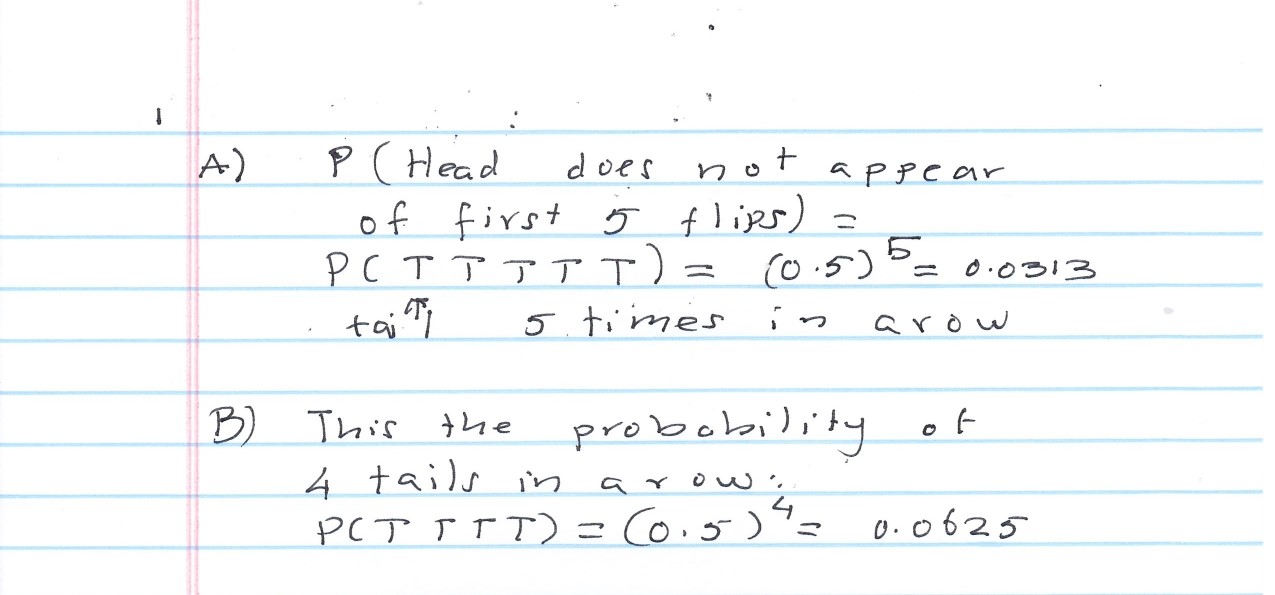 1
A) P (Head does not appear
of first 5 flips) =
P(T T T T T) = (0.5)^5 = 0.0313
tail ↑ 5 times in arow
B) This the probability of
4 tails in a row:
P(T T T T) = (0.5)^4 = 0.0625